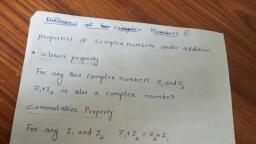 Difference of two complex Numbers
properties of complex numbers under addition
* closure property
For any two complex numbers Z₁ and Z₂
Z₁+Z₂ is also a complex number
Commutative Property
For any Z₁ and Z₂ Z₁+Z₂ = Z₂+Z₁